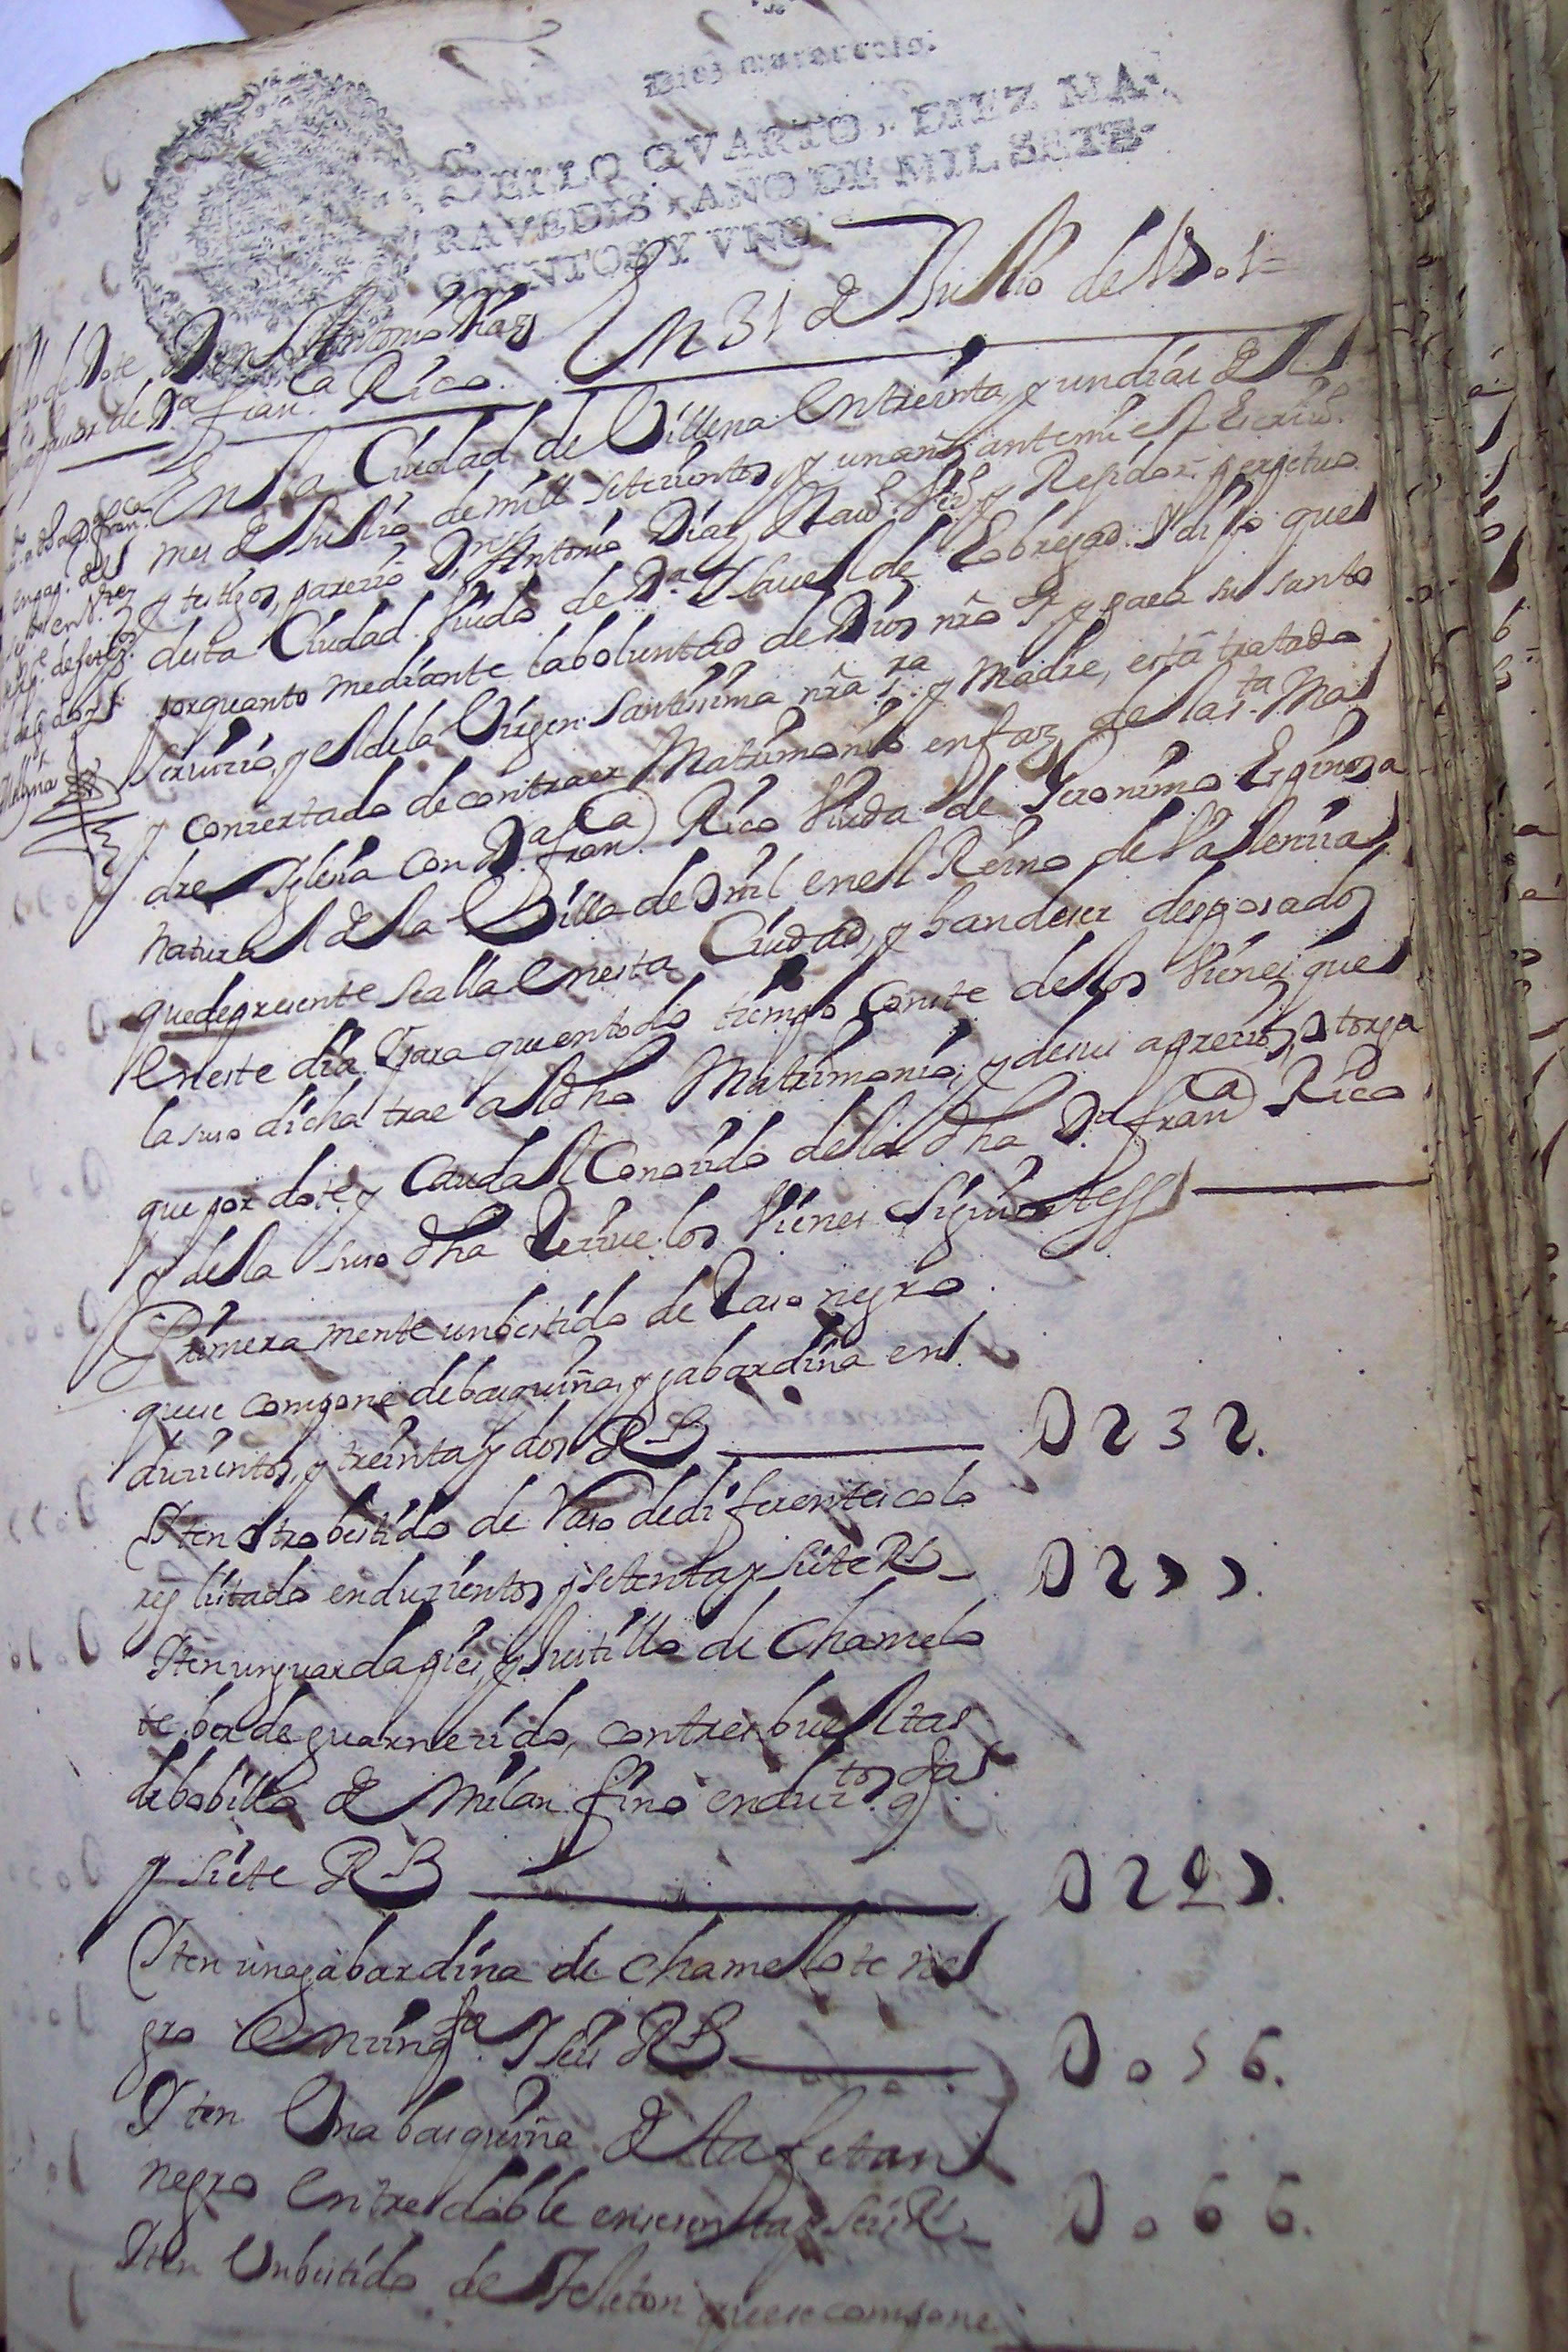 Diez marauedis.
SELLO QVARTO, DIEZ MA-
RAVEDIS, AÑO DE MIL SETE-
CIENTOS Y VNO.
de Dote Dn Antonio Díaz
En 31 de Jullio de 1701=
fauor de Da. franca. Rico
En la Ciudad de Villena En treinta y un dias del
mes de Jullio de mill setezientos y un años ante mi el escriuo.
y testigos, parezio Dn Antonio Díaz Nauo. Vezo. y Rejidor perpetuo
desta Ciudad Viudo de Da. Ysauel de Obregad. Y dijo que
por quanto mediante la boluntad de Dios nro Sr. y para su santo
seruizio, y el de la Virgen Santissima nra sra. y Madre, está tratado
y conzertado de contraer Matrimonio en faz de la sta. Ma
dre Yglesia con Da. franca Rico Viuda de Jeronimo Espinosa
natural de la Villa de Onil en el Reino de Valenzia
que de presente se alla En esta Ciudad, y han de ser desposados
En este dia. Y para que en todo tiempo conste de los Vienes que
la suso dicha trae al dho Matrimonio, y de sus aprezios, otorga
que por dote y Caudal Conozido de la dha Da. franca Rico
y de la suso dha Reziue los Vienes Siguientess
Primera mente un bestido de Raso negro
que se compone de basquiña y gabardina en
duzientos, y treinta y dos Rs D232.
Yten otro bestido de Raso de diferentes colo
res listado en duzientos y setenta y siete Rs D277.
Yten un guardapies, y Justillo de Chamelo
te berde guarnezido, con tres bueltas
de bobillo de Milan fino en duztos. qta
y siete Rs D247.
Yten una gabardina de chamelote ne
gro En zinqta. Y seis Rs D056.
Yten Una basquiña de tafetan
negro Entredoble en sesenta y seis Rs D066.
Yten Un bestido de Teleton que se compone